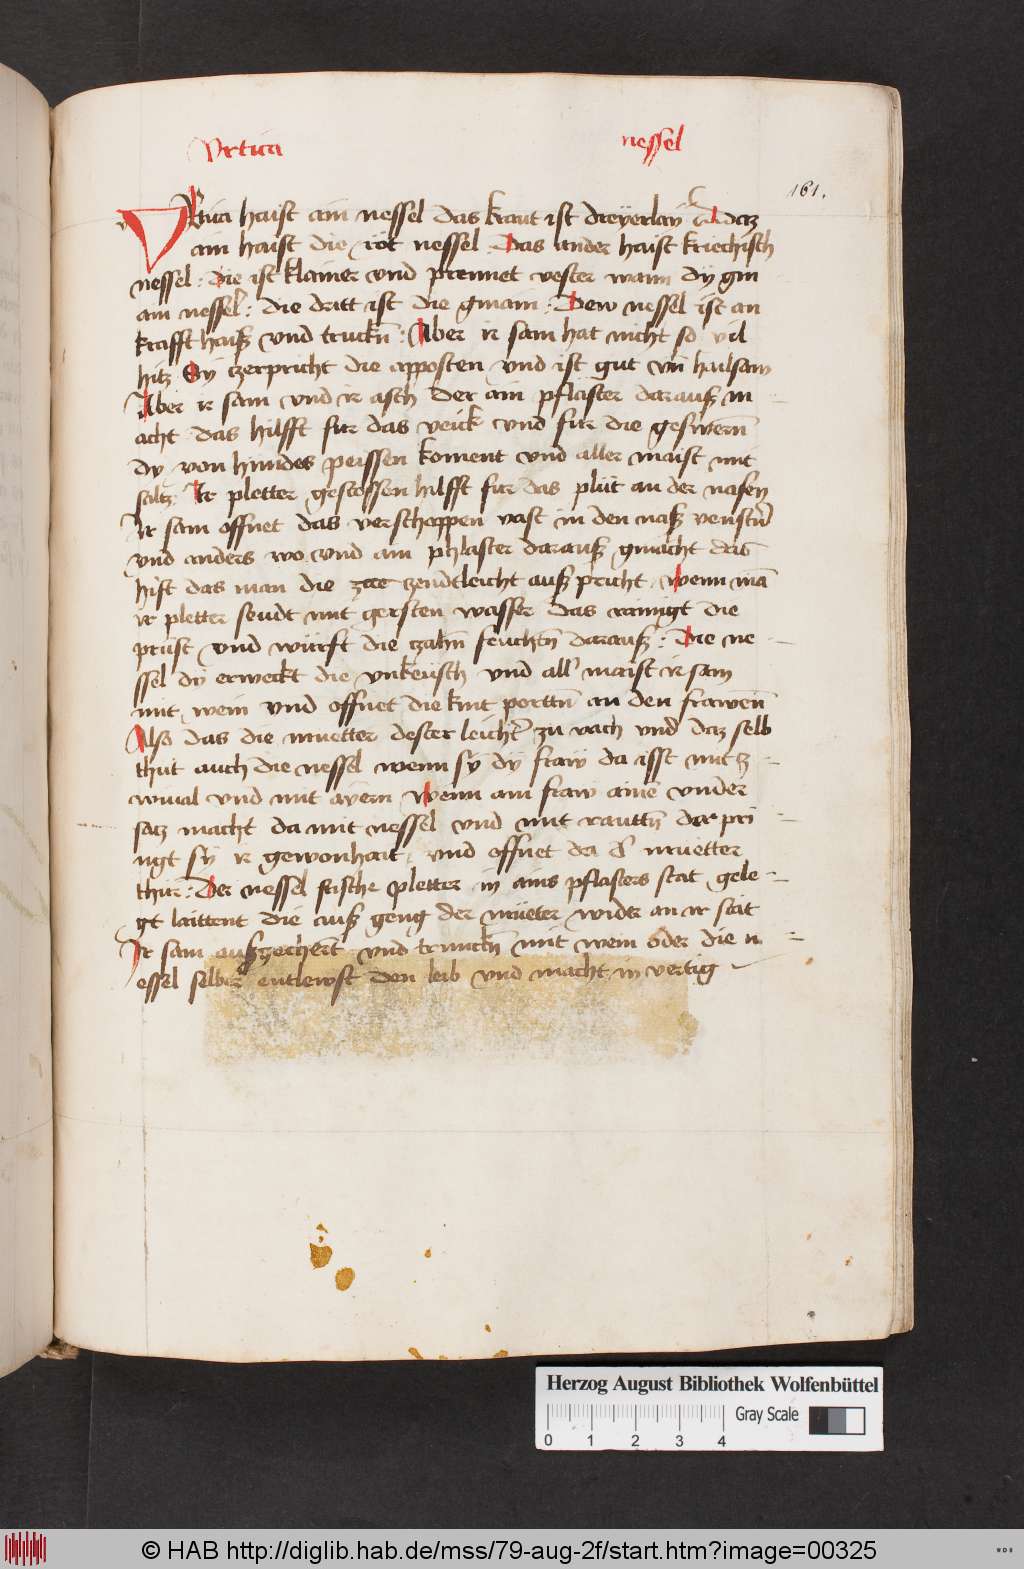 Vrtica nessel
161.
Vrtica haist ain nessel das kraut ist dreyerlay daz
ain haist die röt nessel . Das ander haist kriechisch
nessel : die ist klainer vnd prennet vester wann dy gm
ain nessel : die dritt ist die gmain : Dew nessel ist an
krafft haiß vnd truckn̄ : Aber ir sam hat nicht so vil
hitz Sy tzerpricht die apposten vnd ist gut vn̄ hailsam
Aber ir sam vnd ir asch der ain pflaster darauß m
acht das hilfft fur das veick vnd fur die geswern̄
dy von hundes peissen koment vnd aller maist mit
saltz : Ir pletter gestossen hilfft fur das plut an der nasen
Ir sam offnet das verschoppen vast in den naß venstn̄
vnd anders wo vnd ain phlaster darauß gmacht das
hift das man die zee zendtleicht auß pricht . Wenn mā
ir pletter seudt mit gersten wasser das rainigt die
prust vnd würft die tzahn̄ feuchtn̄ darauß : Die ne
ssel dy erweckt die vnkeusch vnd all maist ir sam
mit wein vnd offnet die kint porttn̄ an den frawen̄
Also das die muetter dester leicht zu vach vnd daz selb
thut auch die nessel wenn sy dy fraw da isst mit tz
wiual vnd mit ayern Wenn ain fraw ainē vnder
satz macht da mit nessel vnd mit rauttn̄ der pri
ngt sy ir gewonhait . vnd offnet da d muetter
thur : Der nessel frische pletter in ains pflasters stat gele
gt laittent die auß geng der mueter wider an ir stat
Ir sam außgechert vnd trunckn̄ mit wein oder die n
essel selber entlewst den leib vnd macht in vertig
Herzog August Bibliothek Wolfenbüttel
Gray Scale
0 1 2 3 4
© HAB http://diglib.hab.de/mss/79-aug-2f/start.htm?image=00325